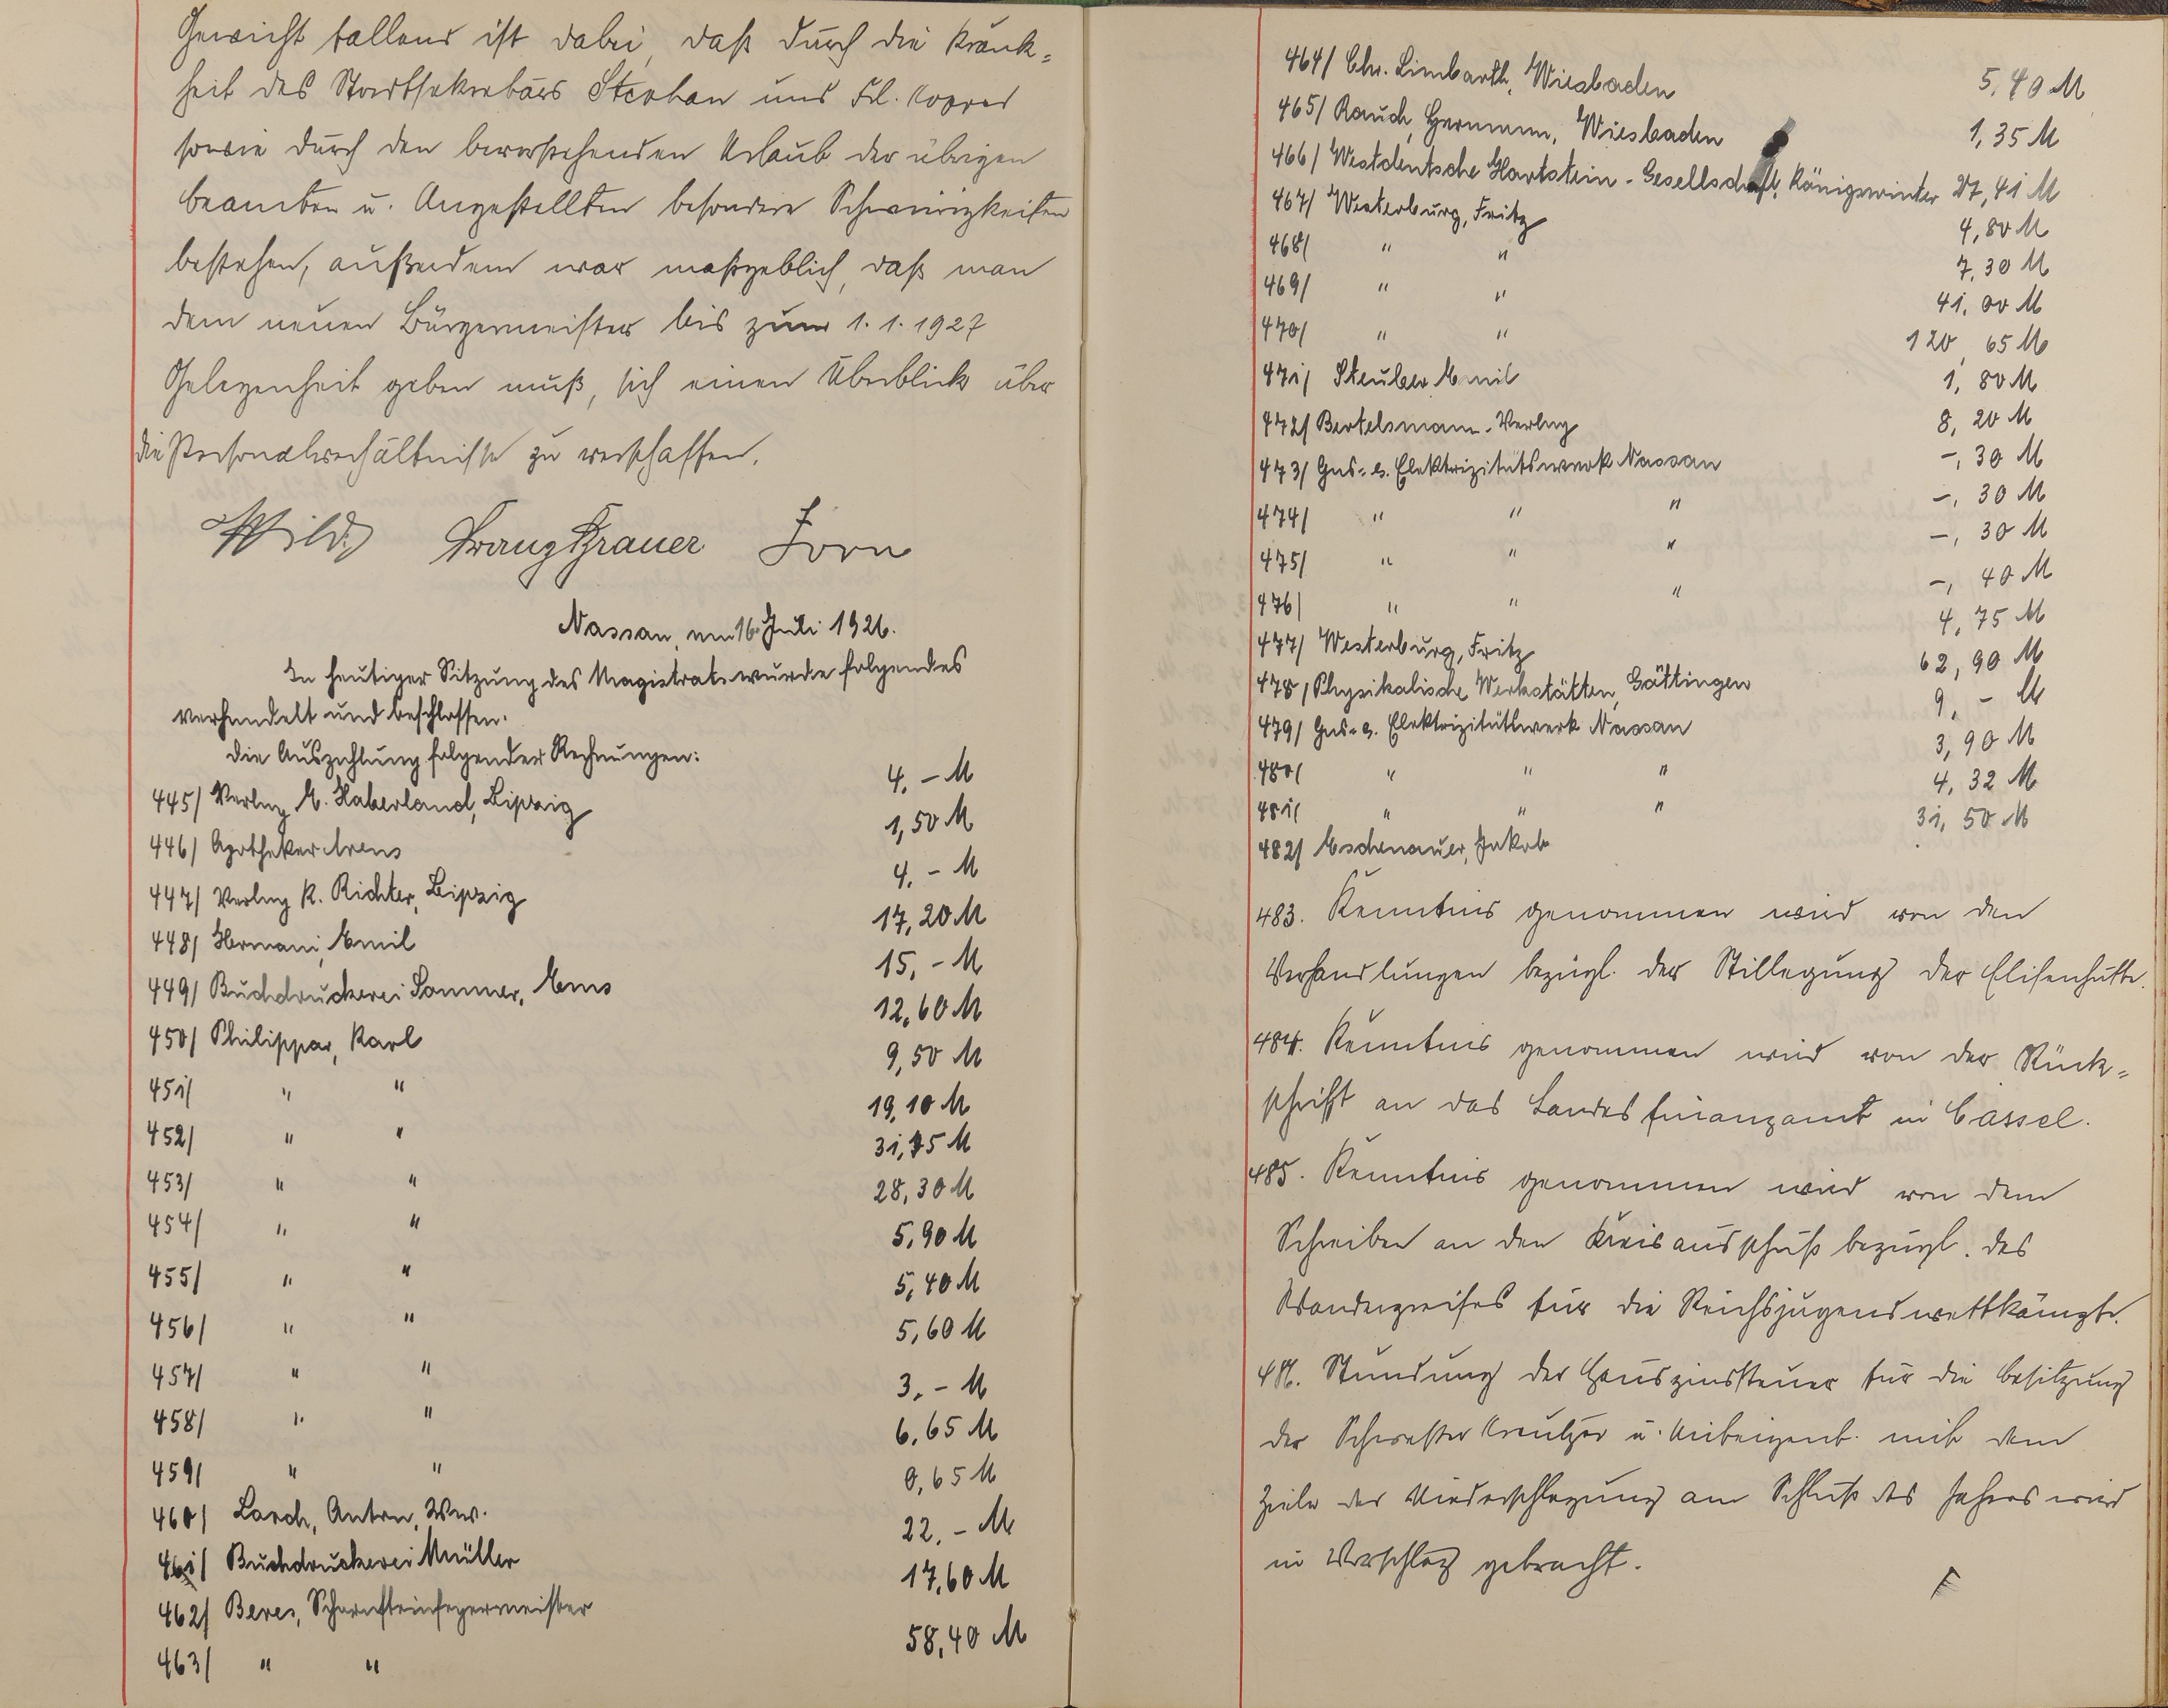 Gewicht fallend ist dabei, daß durch die Krank=
heit des Stadtsekretärs Stephan und Frl.
sowie durch den bevorstehenden Urlaub der übrigen
Beamten u. Angestellten besondere Schwierigkeiten
bestehen, außerdem war maßgeblich, daß man
dem neuen Bürgermeister bis zum 1.1.1927
Gelegenheit geben muß, sich einen Überblick über
die Personalverhältnisse zu verschaffen.
Wild Franz Brauer Zorn
Nassau, am 16. Juli 1926.
In heutiger Sitzung des Magistrats wurde folgendes
verhandelt und beschlossen.
Die Auszahlung folgender Rechnungen:
445/ Verlag E. Haberland, Leipzig 4,- M
446/ Apotheker Arens 1,50 M
447/ Verlag R. Richter, Leipzig 4,- M
448/ Hermani, Emil 17,20 M
449/ Buchdruckerei Sommer, Ems 15,- M
450/ Philippar, Karl 12,60 M
451/ " " 9,50 M
452/ " " 19,10 M
453/ " " 31,75 M
454/ " " 28,30 M
455/ " " 5,90 M
456/ " " 5,40 M
457/ " " 5,60 M
458/ " " 3,- M
459/ " " 6,65 M
460/ Larch, Anton, Ww. 0,65 M
461/ Buchdruckerei Müller 22,- M
462/ Beres, Schornsteinfegermeister 17,60 M
463/ " " 58,40 M
464/ Chr. Limbarth, Wiesbaden 5,40 M
465/ Rauch, Hermann, Wiesbaden 1,35 M
466/ Westdeutsche Hartstein-Gesellschaft, Königswinter 27,41 M
467/ Westerburg, Fritz 4,80 M
468/ " " 7,30 M
469/ " " 41,00 M
470/ " " 120,65 M
471/ Steuber Emil 1,80 M
472/ Bertelsmann-Verlag 8,20 M
473/ Gas- u. Elektrizitätswerk Nassau -,30 M
474/ " " " -,30 M
475/ " " " -,30 M
476/ " " " -,40 M
477/ Westerburg, Fritz 4,75 M
478/ Physikalische Werkstätten, Göttingen 62,90 M
479/ Gas- u. Elektrizitätswerk Nassau 9,- M
480/ " " " 3,90 M
481/ " " " 4,32 M
482/ Eschenauer, Jakob 31,50 M
483. Kenntnis genommen wird von den
Verhandlungen bezügl. der Stillegung der Elisenhütte.
484. Kenntnis genommen wird von der Rück=
schrift an das Landesfinanzamt in Cassel.
485. Kenntnis genommen wird von dem
Schreiben an den Kreisausschuß bezügl. des
Wanderpreises für die Reichsjugendwettkämpfe.
486. Stundung der Hauszinssteuer für die Besitzung
der Schwester Kreutzer u. Miteigent. mit dem
Ziele der Niederschlagung am Schluß des Jahres wird
in Vorschlag gebracht.